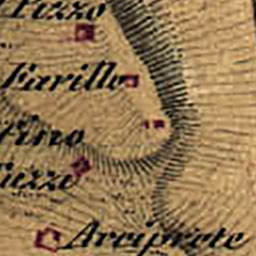 Pizzo
Farillo
Pino
Arciprete